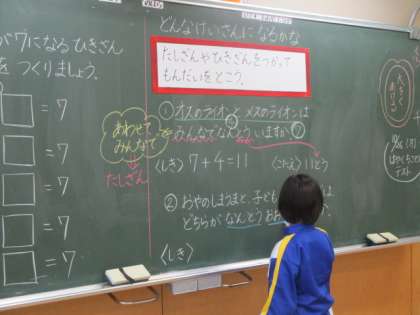 が7になるひきざん
をつくりましょう。
□=7
□=7
□=7
□=7
□=7
どんなけいさんになるかな
たしざんやひきざんをつかって
もんだいをとこう。
①オスのライオンとメスのライオンは
みんなでなんとういますか?
あわせて
みんなで
たしざん
〈しき〉7+4=11 〈こたえ〉11とう
②おやのしまうまと、子ども は
どちらがなんとうおお
〈しき〉
テスト